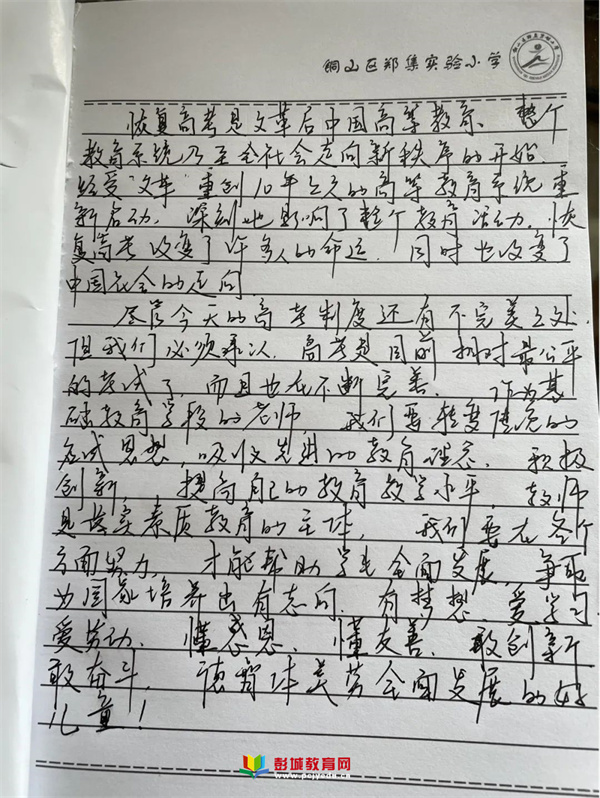 铜山区郑集实验小学
恢复高考是文革后中国高等教育、整个
教育系统乃至全社会走向新秩序的开始。
经受“文革”重创10年之久的高等教育系统重
新启动,深刻地影响了整个教育活动,恢
复高考改变了许多人的命运,同时也改变了
中国社会的走向
尽管今天的高考制度还有不完美之处,
但我们必须承认,高考是目前相对最公平
的考试了,而且也在不断完善。作为基
础教育学段的老师,我们要转变传统的
应试思想,吸收先进的教育理念,积极
创新,提高自己的教育教学水平,教师
是落实素质教育的主体,我们要在各个
方面努力,才能帮助学生全面发展,争取
为国家培养出有志向、有梦想、爱学习
爱劳动、懂感恩、懂友善、敢创新
敢奋斗,德智体美劳全面发展的好
儿童!
彭城教育网